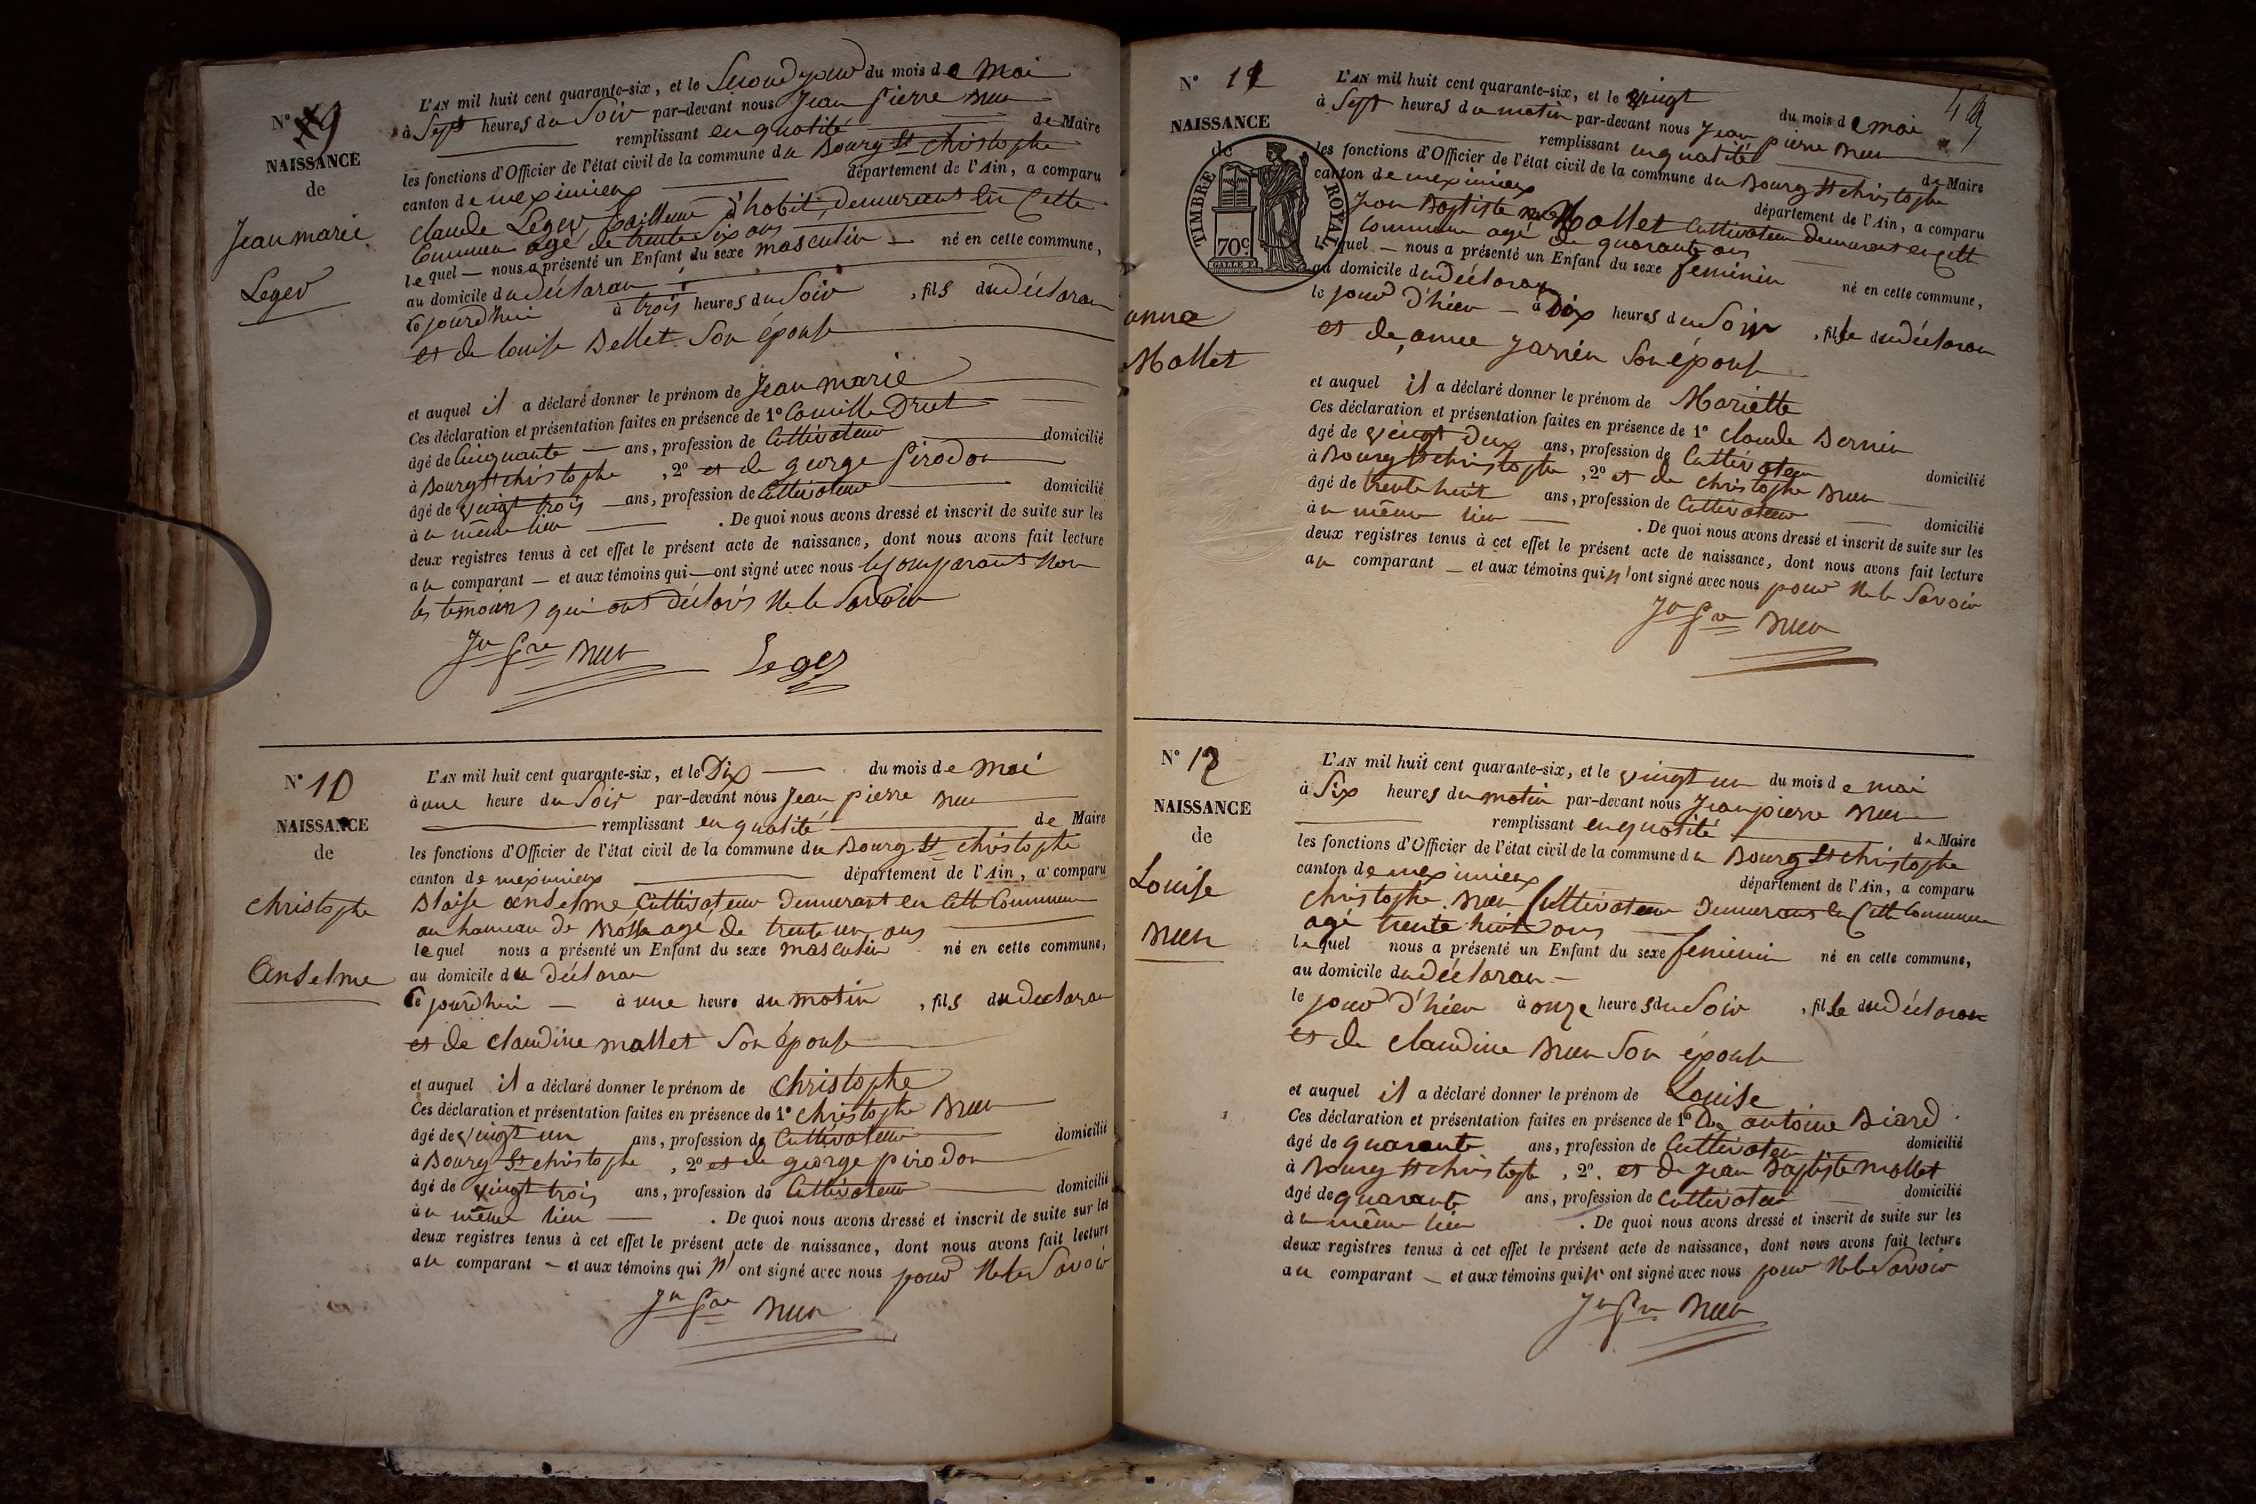 N° 9
NAISSANCE
de
Jean marie
Leger
L'AN mil huit cent quarante-six, et le Second jour du mois de Mai
à Sept heures du Soir par-devant nous Jean pierre
remplissant en qualité de Maire
les fonctions d'Officier de l'état civil de la commune du Bourg St christophe
canton de meximieux département de l'Ain, a comparu
claude Leger, tailleur d'habit, demeurant en Cette
Commune agé de trente Six ans
lequel nous a présenté un Enfant du sexe masculin né en cette commune,
au domicile du déclaran
Ce jourd'hui à trois heures du Soir, fils du déclaran
et de louise Bellet Son épouse
et auquel il a déclaré donner le prénom de Jean marie
Ces déclaration et présentation faites en présence de 1° Camille Druet
âgé de Cinquante ans, profession de Cultivateur domicilié
à Bourg St christophe, 2° et de george pirodon
âgé de vingt trois ans, profession de Cultivateur domicilié
à u même lieu. De quoi nous avons dressé et inscrit de suite sur les
deux registres tenus à cet effet le présent acte de naissance, dont nous avons fait lecture
au comparant et aux témoins qui ont signé avec nous le comparant Non
les temoins qui ont déclarés Ne le Savoir
Jn Pre
Leger
N° 10
NAISSANCE
de
christophe
anselme
L'AN mil huit cent quarante-six, et le Dix du mois de Mai
à une heure du Soir par-devant nous Jean pierre
remplissant en qualité de Maire
les fonctions d'Officier de l'état civil de la commune du Bourg St christophe
canton de meximieux département de l'Ain, a comparu
Blaise anselme Cultivateur demeurant en Cette Commune
au hameau de agé de trente un ans
lequel nous a présenté un Enfant du sexe masculin né en cette commune,
au domicile du déclaran
Ce jourd'hui à une heure du matin, fils du déclaran
et de claudine mallet Son épouse
et auquel il a déclaré donner le prénom de christophe
Ces déclaration et présentation faites en présence de 1° christophe
âgé de vingt un ans, profession de Cultivateur domicilié
à Bourg St christophe, 2° et de george pirodon
âgé de vingt trois ans, profession de Cultivateur domicilié
à u même lieu. De quoi nous avons dressé et inscrit de suite sur les
deux registres tenus à cet effet le présent acte de naissance, dont nous avons fait lecture
au comparant et aux témoins qui n'ont signé avec nous pour Ne le Savoir
Jn Pre
N° 11
NAISSANCE
de
TIMBRE ROYAL
70c
anna
Mallet
L'AN mil huit cent quarante-six, et le vingt du mois de mai
à Sept heures du matin par-devant nous Jean pierre
remplissant en qualité de Maire
les fonctions d'Officier de l'état civil de la commune du Bourg St christophe
canton de meximieux département de l'Ain, a comparu
Jean Baptiste Mallet Cultivateur demeurant en Cette
Commune agé de quarante ans
lequel nous a présenté un Enfant du sexe feminin né en cette commune,
au domicile du déclaran
le jour d'hier à Dix heures du Soir, fille du déclaran
et de Son épouse
et auquel il a déclaré donner le prénom de Mariette
Ces déclaration et présentation faites en présence de 1° claude Bernin
âgé de vingt Deux ans, profession de Cultivateur domicilié
à Bourg St christophe, 2° et de christophe
âgé de trente huit ans, profession de Cultivateur domicilié
à u même lieu. De quoi nous avons dressé et inscrit de suite sur les
deux registres tenus à cet effet le présent acte de naissance, dont nous avons fait lecture
au comparant et aux témoins qui n'ont signé avec nous pour Ne le Savoir
Jn Pre
N° 12
NAISSANCE
de
Louise
L'AN mil huit cent quarante-six, et le vingt un du mois de mai
à Six heures du matin par-devant nous Jean pierre
remplissant en qualité de Maire
les fonctions d'Officier de l'état civil de la commune du Bourg St christophe
canton de meximieux département de l'Ain, a comparu
christophe Cultivateur demeurant en Cette Commune
agé trente huit ans
lequel nous a présenté un Enfant du sexe feminin né en cette commune,
au domicile du déclaran
le jour d'hier à onze heures du Soir, fille du déclaran
et de claudine Son épouse
et auquel il a déclaré donner le prénom de Louise
Ces déclaration et présentation faites en présence de 1° De antoine Biard
âgé de quarante ans, profession de Cultivateur domicilié
à Bourg St christophe, 2°. et de Jean Baptiste mallet
âgé de quarante ans, profession de Cultivateur domicilié
à u même lieu. De quoi nous avons dressé et inscrit de suite sur les
deux registres tenus à cet effet le présent acte de naissance, dont nous avons fait lecture
au comparant et aux témoins qui n'ont signé avec nous pour Ne le Savoir
Jn Pre